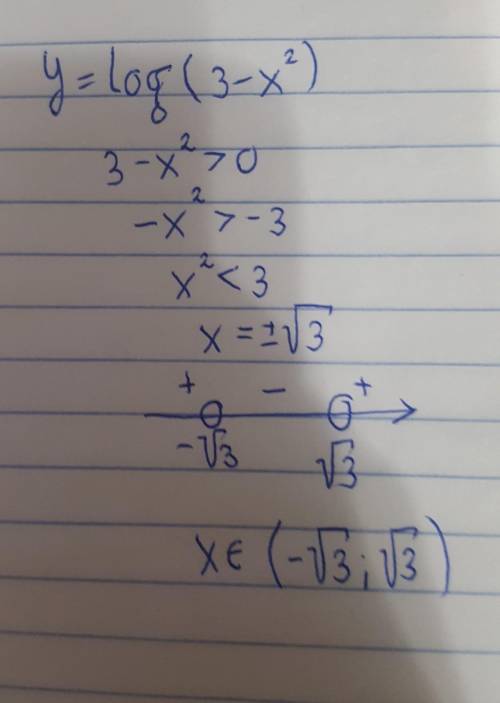 y = log(3-x²)
3-x² > 0
-x² > -3
x² < 3
x = ±√3
+ - +
-√3 √3
x ∈ (-√3; √3)